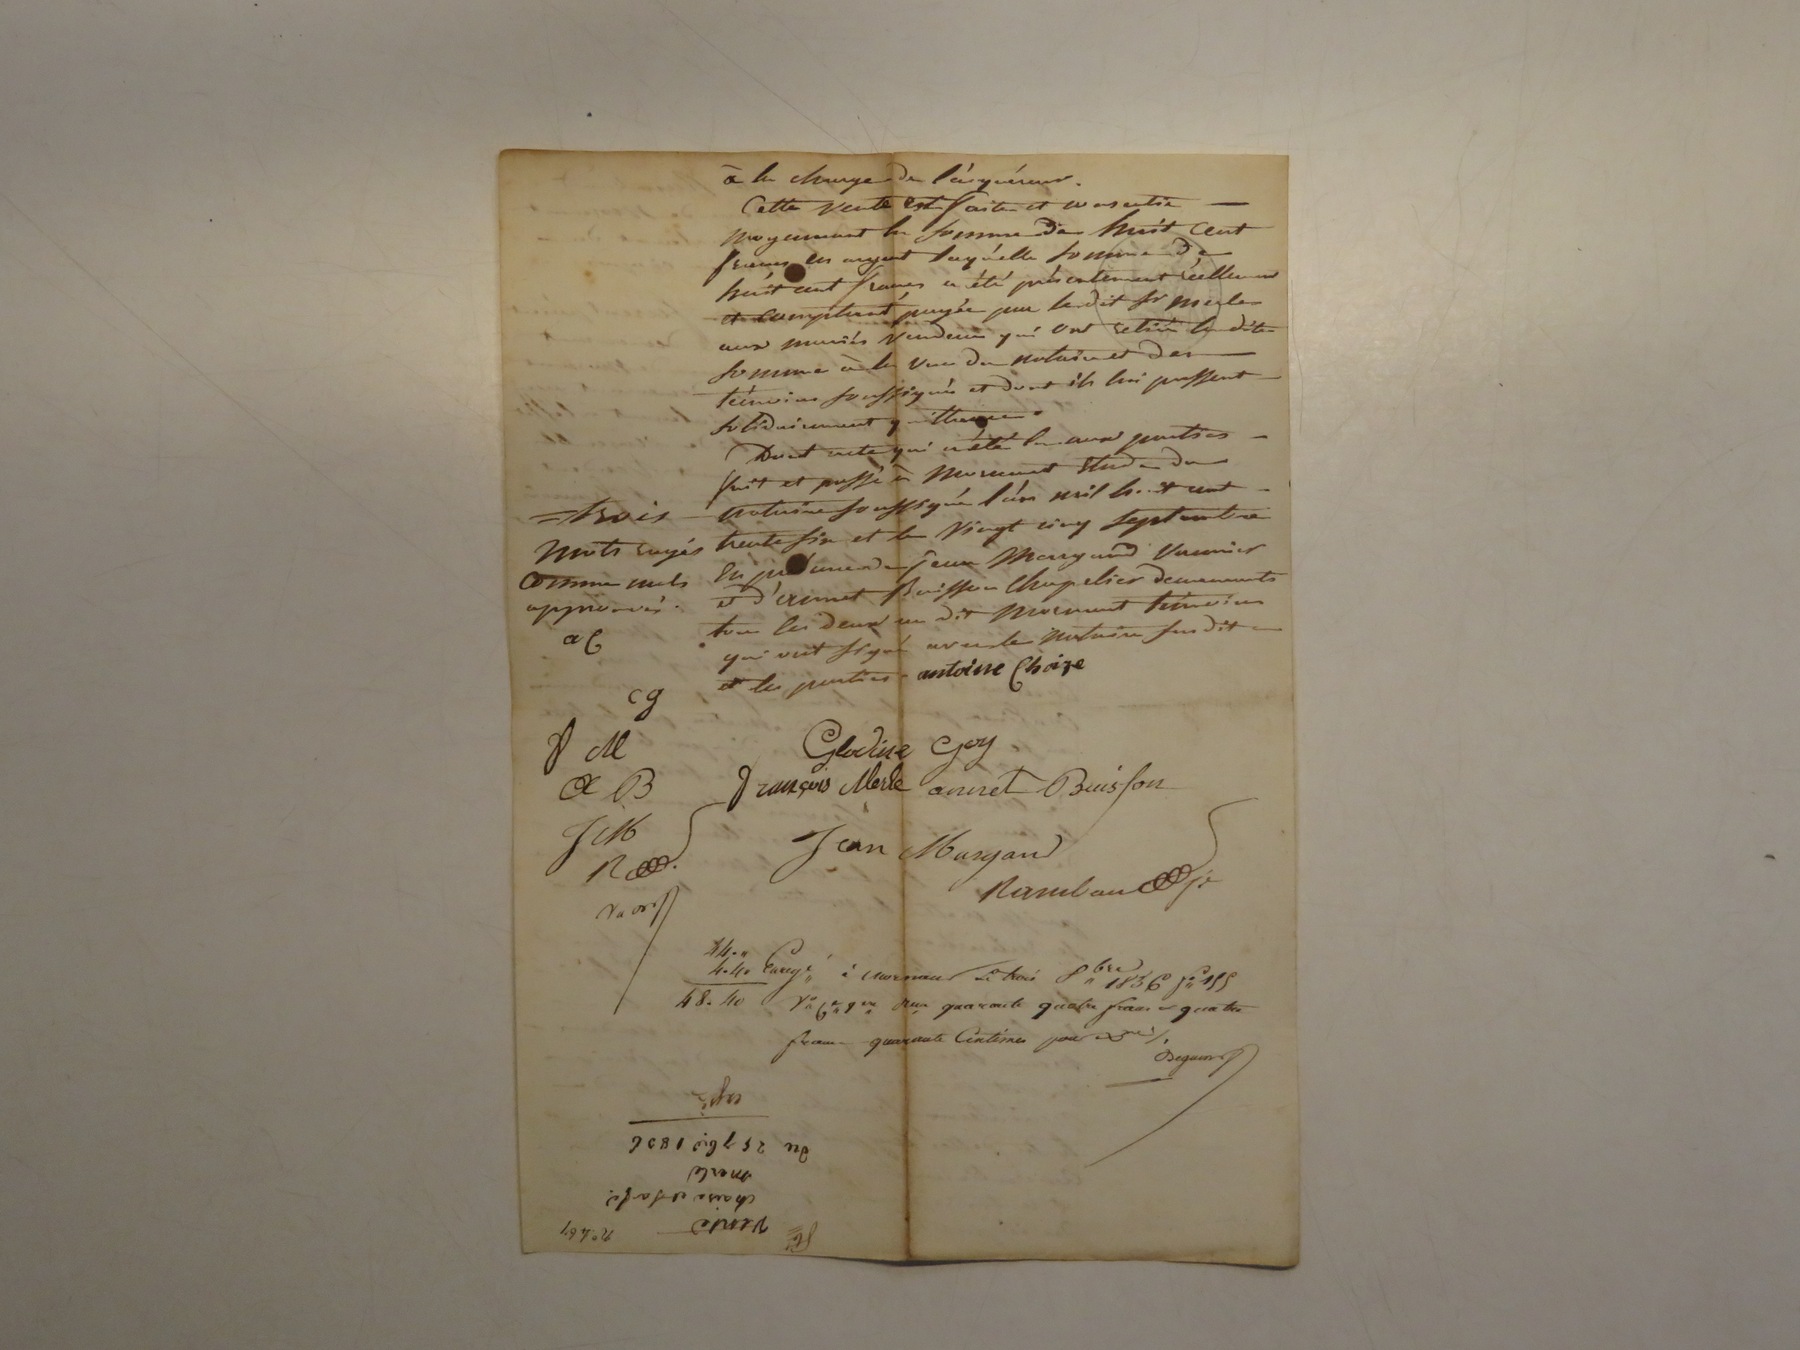 à la charge de l'acquéreur.
Cette vente est faite et consentie —
moyennant la somme de huit cent
francs en argent laquelle somme de
huit cent francs a été présentement réellement
et comptant payée par le dit sr merle
aux mariés vendeurs qui ont retiré la dite
somme à la vue du notaire et des —
témoins soussignés et dont ils lui passent —
solidairement quittance.
Dont acte qui a été lu aux parties —
fait et passé à Mornant étude du
notaire soussigné l'an mil huit cent —
trente six et le vingt cinq septembre
en présence de jean Margand
et d'annet Buisson chapelier demeurants
tous les deux au dit Mornant témoins
qui ont signé avec le notaire susdit —
et les parties. antoine Chaize
= trois
mots rayés
comme nuls
approuvés.
a C
c g
f M
a B
J M
R
Glodine Goy
françois Merle annet Buisson
Jean Margand
Rambaud
44. "
4.40
48.40
Enregé à mornant le trois 8bre 1836 fo 155
quarante quatre francs et quatre
francs quarante Centimes pour
Vente
chaize et
merle
du 25 7bre 1836